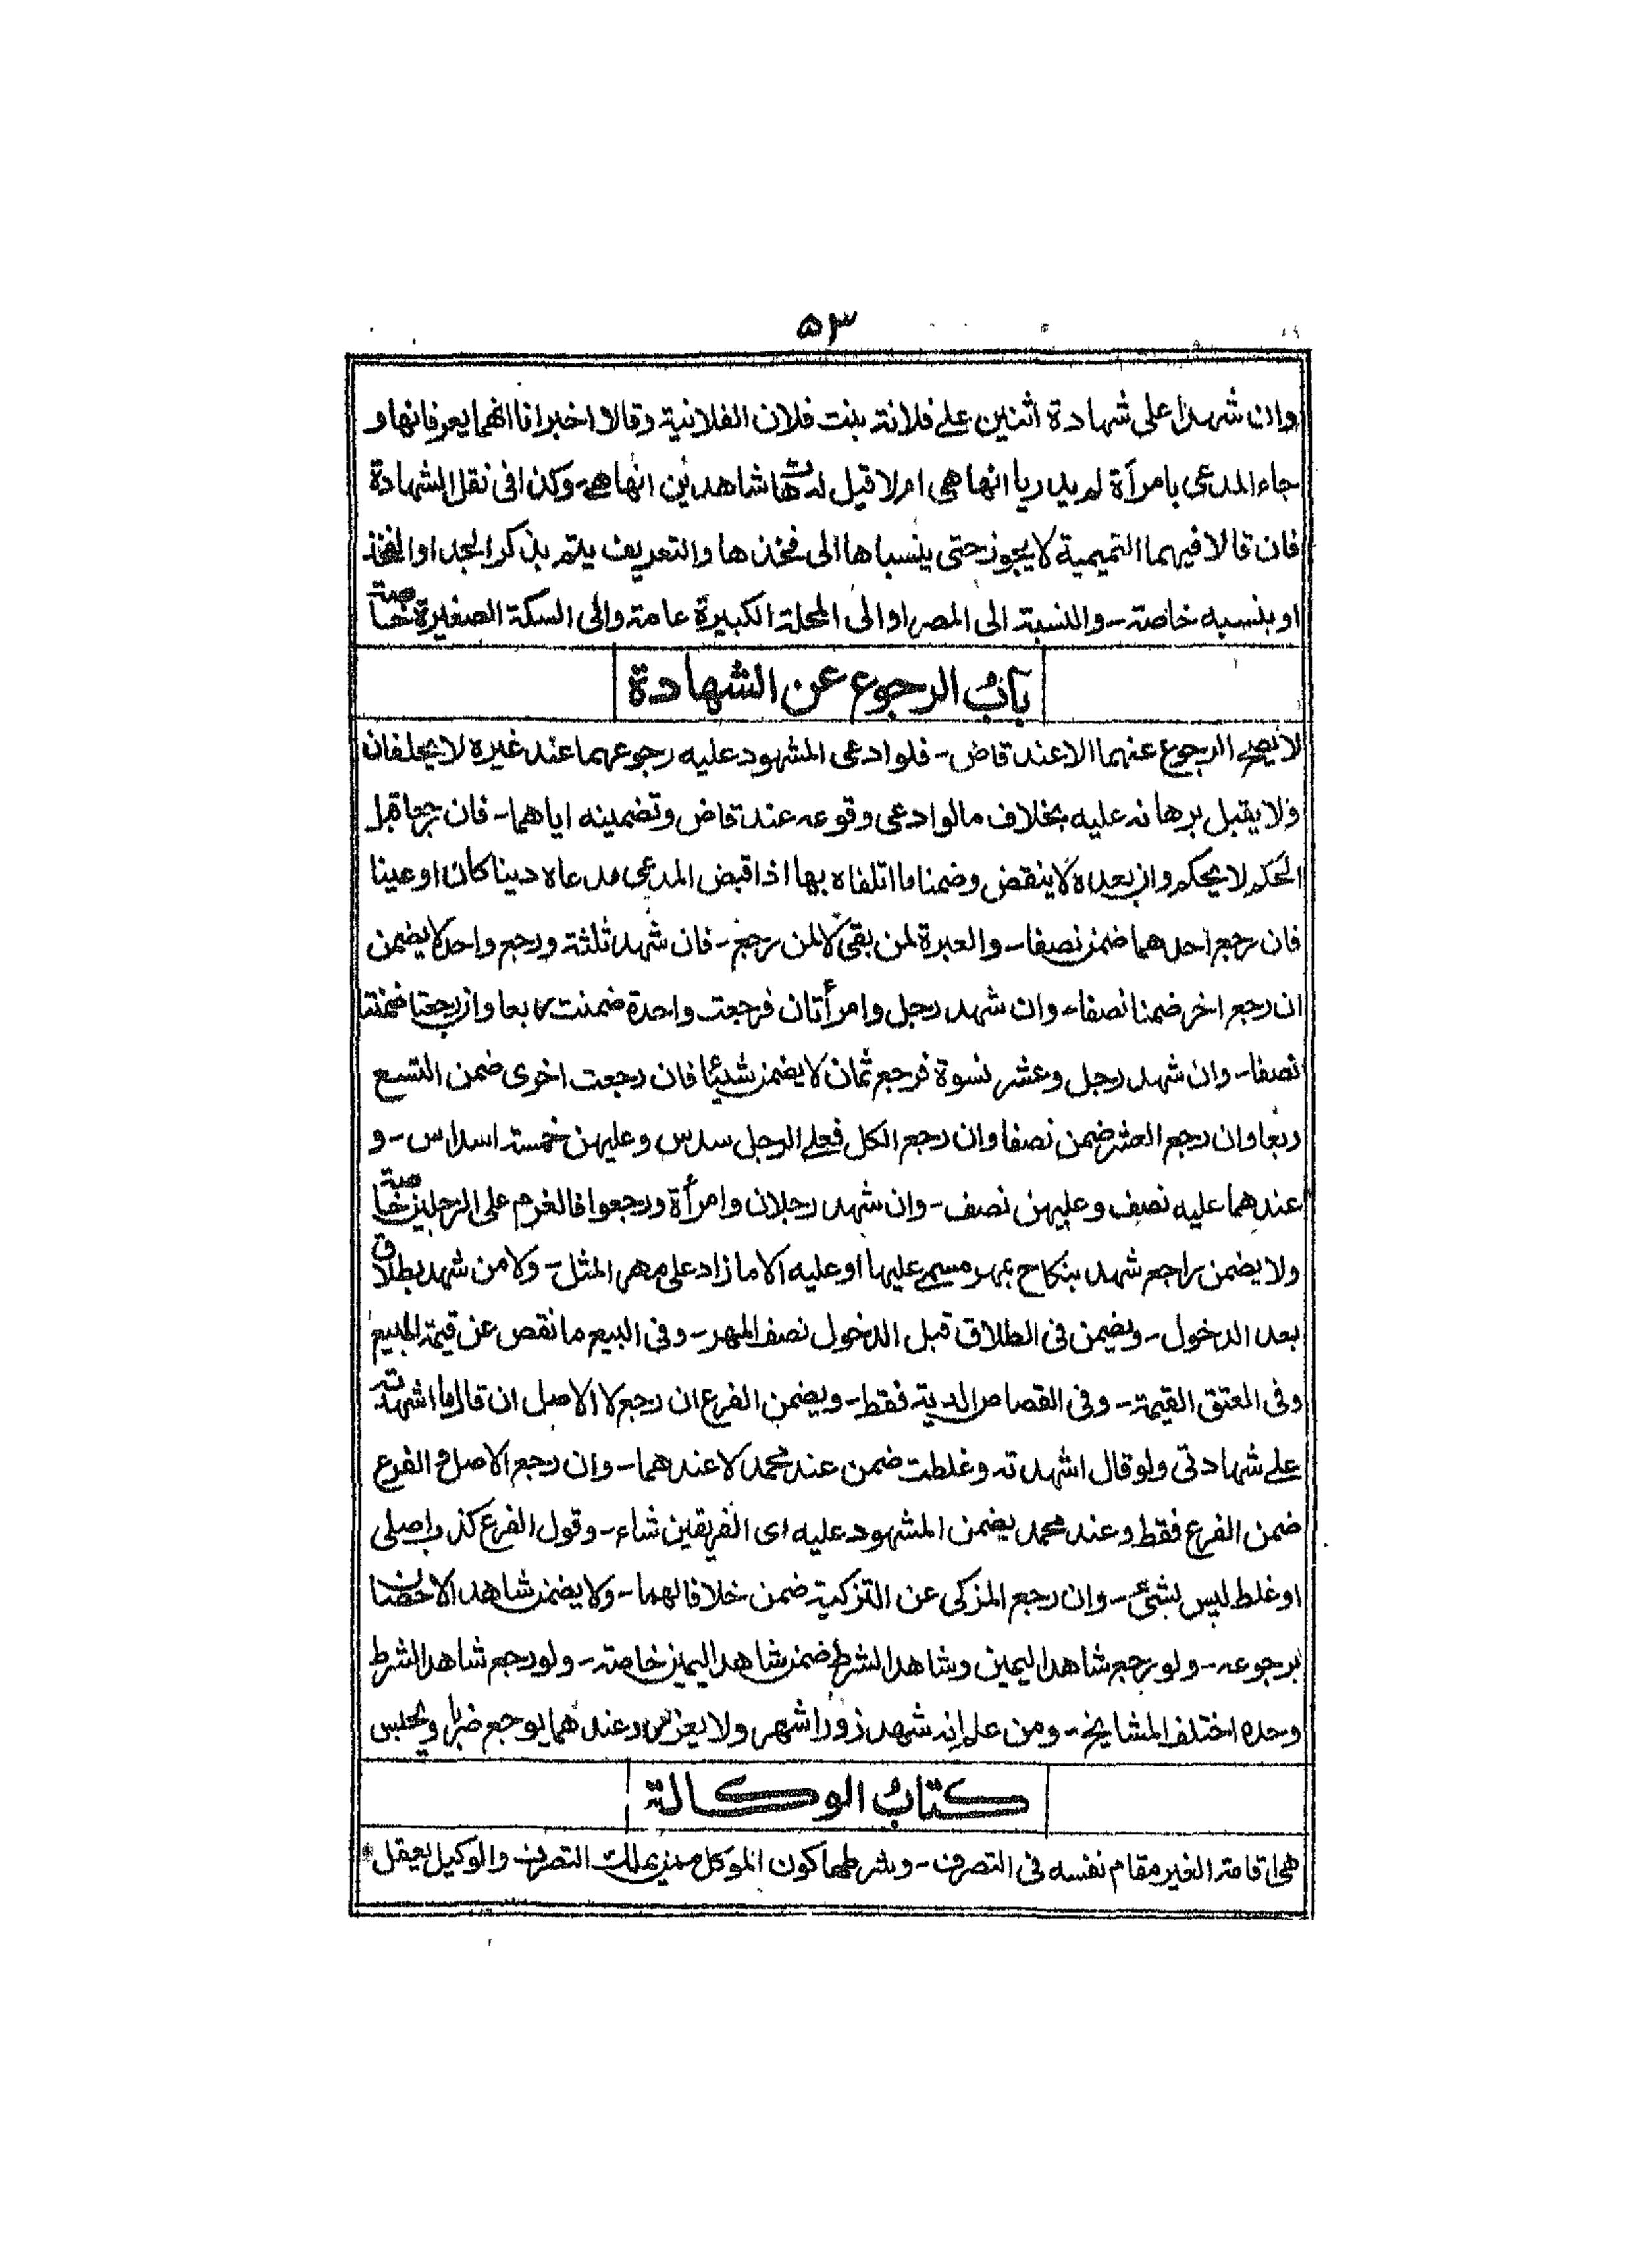 ۵۳
وان شهدا على شهادة اثنين على فلانة بنت فلان الفلانية وقالا اخبرانا انهما يعرفانها و
جاء المدعى بامرأة لم يدريا انها هى ام لا قيل له هات شاهدين انها هى- وكذا فى نقل الشهادة
فان قالا فيهما التميمية لا يجوز حتى ينسباها الى فخذها والتعريف يتم بذكر الجد او الفخذ
او بنسبه خاصة- والنسبة الى المصر او الى المحلة الكبيرة عامة والى السكة الصغيرة خاصة
بابُ الرجوع عن الشهادة
لا يصح الرجوع عنهما الا عند قاض- فلو ادعى المشهود عليه رجوعهما عند غيره لا يحلفان
ولا يقبل برهانه عليه بخلاف ما لو ادعى وقوعه عند قاض وتضمينه اياهما- فان رجعا قبل
الحكم لا يحكم وان بعده لا ينقض وضمنا ما اتلفاه بها اذا قبض المدعى مدعاه دينا كان او عينا
فان رجع احدهما ضمن نصفا- والعبرة لمن بقى لا لمن رجع- فان شهد ثلثة ورجع واحد لا يضمن
ان رجع اخر ضمنا نصفا- وان شهد رجل وامرأتان فرجعت واحدة ضمنت ربعا وان رجعتا ضمنتا
نصفا- وان شهد رجل وعشر نسوة فرجع ثمان لا يضمن شيئا فان رجعت اخرى ضمن التسع
ربعا وان رجع العشر ضمن نصفا وان رجع الكل فعلى الرجل سدس وعليهن خمسة اسداس- و
عندهما عليه نصف وعليهن نصف- وان شهد رجلان وامرأة ورجعوا فالغرم على الرجلين خاصة
ولا يضمن راجع شهد بنكاح بمهر مسمى عليها او عليه الا ما زاد على مهر المثل- ولا من شهد بطلاق
بعد الدخول- ويضمن فى الطلاق قبل الدخول نصف المهر- وفى البيع ما نقص عن قيمة المبيع
وفى العتق القيمة- وفى القصاص الدية فقط- ويضمن الفرع ان رجع لا الاصل ان قال ما اشهدته
على شهادتى ولو قال اشهدته وغلطت ضمن عند محمد لا عندهما- وان رجع الاصل و الفرع
ضمن الفرع فقط وعند محمد يضمن المشهود عليه اى الفريقين شاء- وقول الفرع كذب اصلى
او غلط ليس بشئ- وان رجع المزكى عن التزكية ضمن خلافا لهما- ولا يضمن شاهد الاحصان
برجوعه- ولو رجع شاهد اليمين وشاهد الشرط ضمن شاهد اليمين خاصة- ولو رجع شاهد الشرط
وحده اختلف المشايخ- ومن علم انه شهد زورا شهر ولا يعزر وعندهما يوجع ضربا ويحبس
كتابُ الوكالة
هى اقامة الغير مقام نفسه فى التصرف- وشرطها كون الموكل ممن يملك التصرف والوكيل يعقل